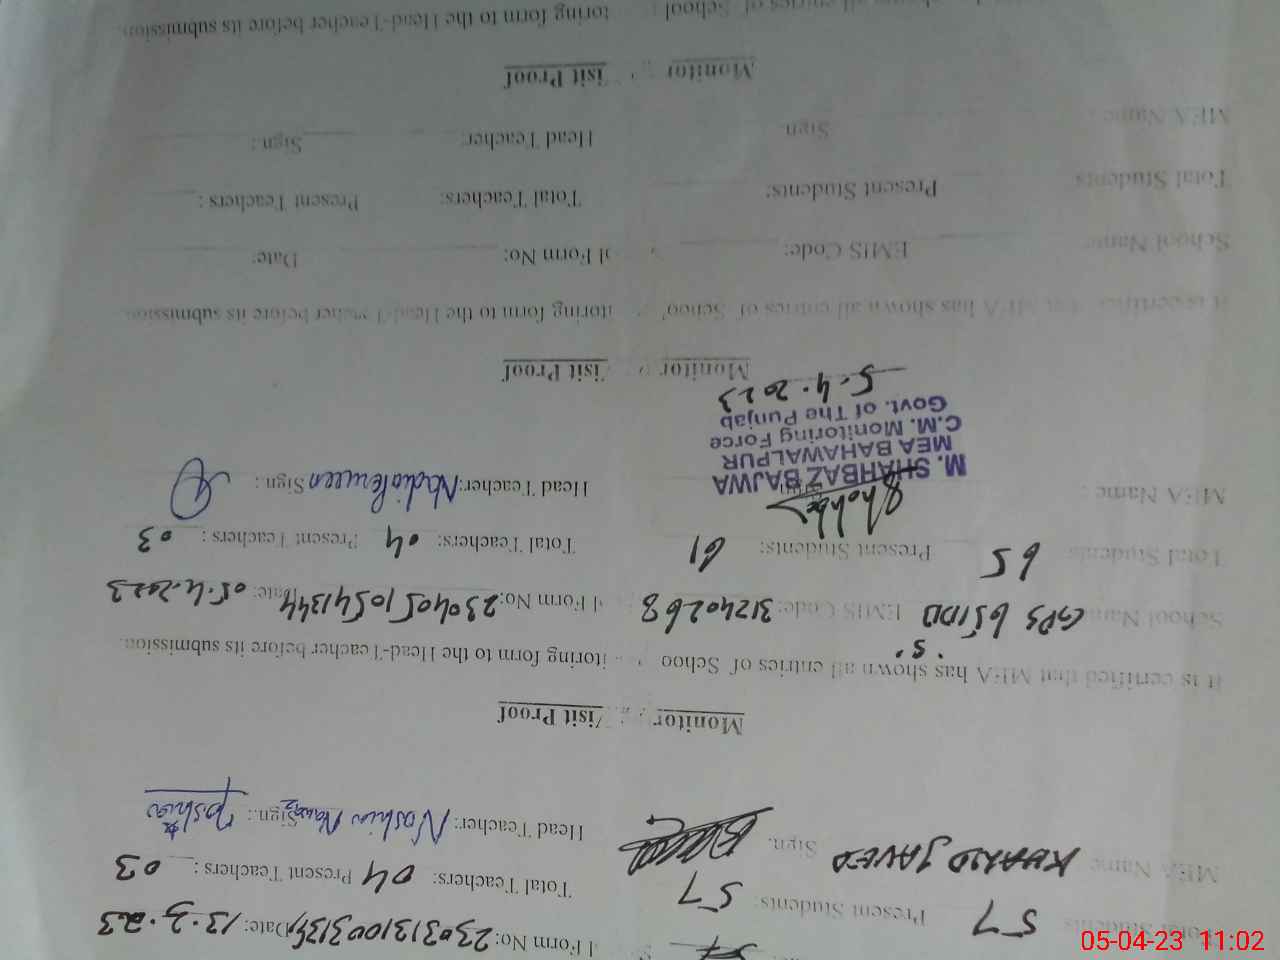 Form No: 2303131003134 Date: 13.3.23
Total Students 57 Present Students: 57 Total Teachers: 04 Present Teachers: 03
MEA Name KHALID JAVED Sign. Head Teacher: Noshin Nawaz Sign.:
Monitor Visit Proof
It is certified that MEA has shown all entries of School itoring form to the Head-Teacher before its submission.
School Name GPS 65/DB EMIS Code: 31240268 Form No: 23040510541344 Date: 05.4.2023
Total Students 65 Present Students: 61 Total Teachers: 04 Present Teachers: 03
MEA Name: Head Teacher: Nadia Perveen Sign.:
M. SHAHBAZ BAJWA
MEA BAHAWALPUR
C.M. Monitoring Force
Govt. of The Punjab
5.4.2023
Monitor Visit Proof
It is certified that MEA has shown all entries of School itoring form to the Head-Teacher before its submission
School Name EMIS Code: Form No: Date:
Total Students Present Students: Total Teachers: Present Teachers:
MEA Name: Sign Head Teacher: Sign.:
Monitor Visit Proof
all entries of School toring form to the Head-Teacher before its submission.
05-04-23 11:02